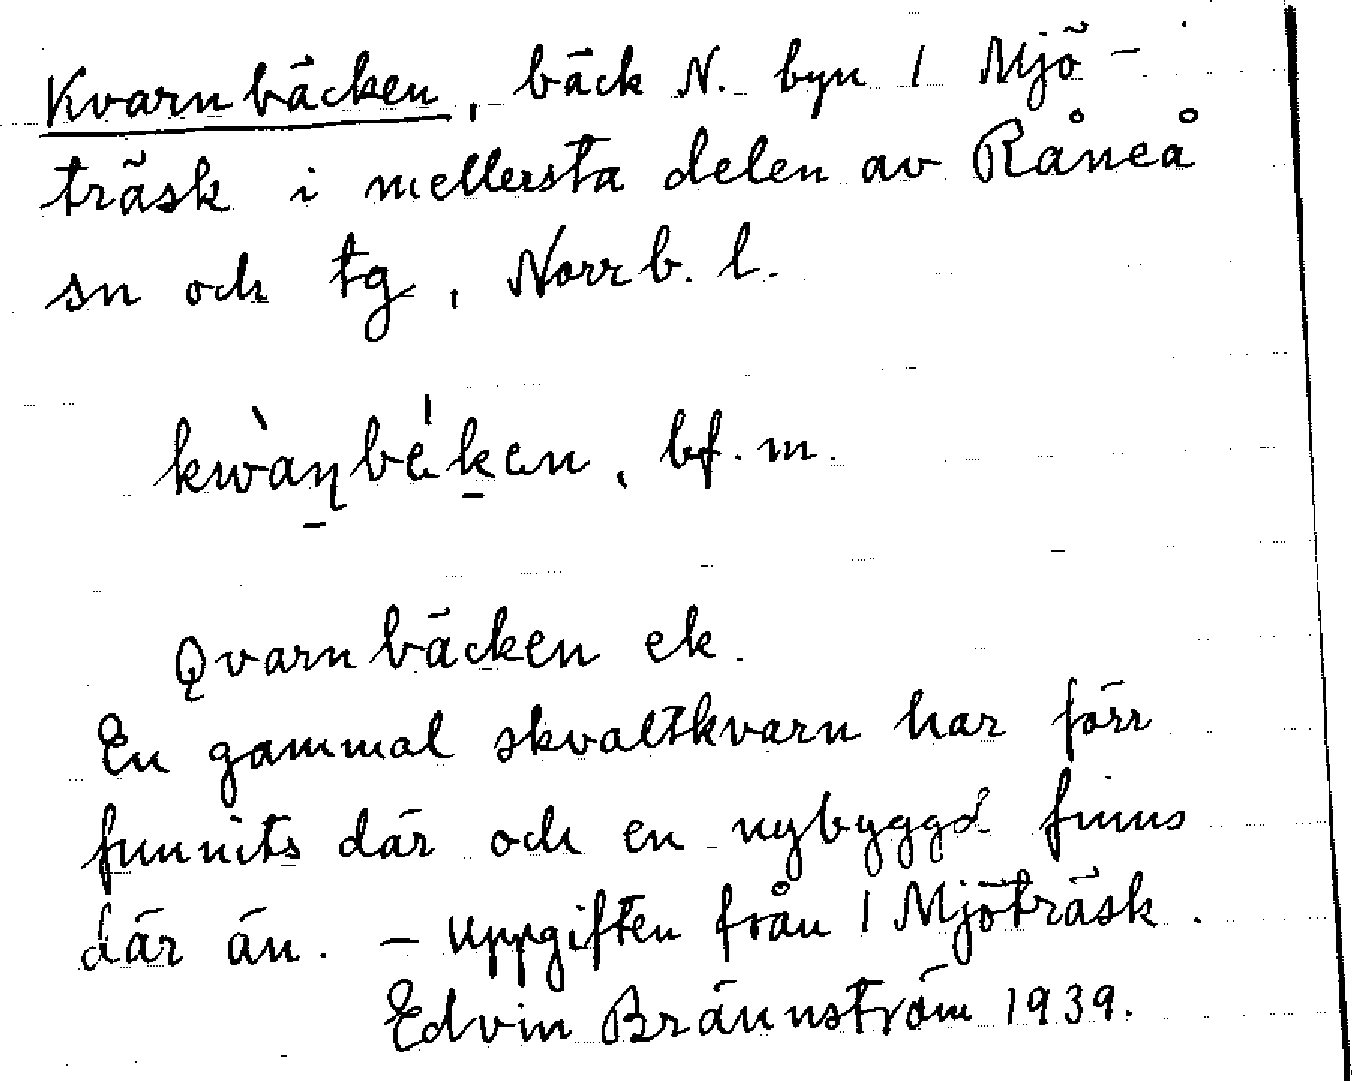 Kvarnbäcken, bäck N. byn 1 Mjö-
träsk i mellersta delen av Råneå
sn och tg, Norrb. l.
kwàṉbe̍ḵen, bf. m.
Qvarnbäcken ek.
En gammal skvaltkvarn har förr
funnits där och en nybyggd finns
där än. – Uppgiften från 1 Mjöträsk.
Edvin Brännström 1939.